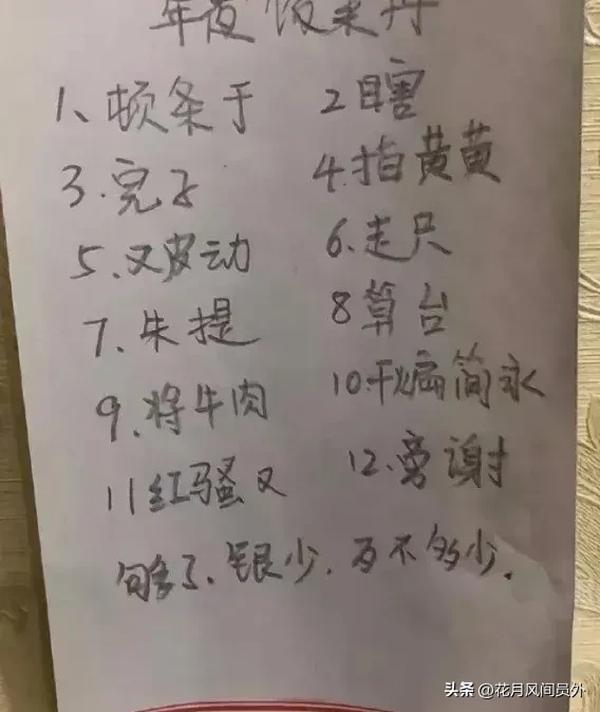 年夜饭菜丹
1、顿条于 2目害
3.完子 4.指黄黄
5、又皮动 6.走尺
7、朱提 8算台
9、将牛肉 10.干煸简永
11红骚又 12.旁谢
够了、银少.百不多少.
头条 @花月风间员外